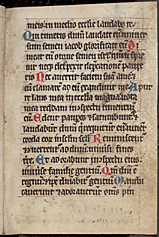 meo in medio ecclesie laudabo te
Qui timetis dnm laudate eum uniuer
sum semen iacob glorificate eum Ti
meat eum omne semen isrl qm non
spreuit neqz despexit deprecationē paupe
ris Nec auertit faciem suā a me et
cum clamarem ad eum exaudiuit me Apud
te laus mea in ecclesia magna uota
mea reddam in conspectu timentium
eū Edent pauperes et saturabuntur et
laudabūt dnm qui requirūt eum uiuēt
corda eorū in sclm scli Reminiscent
et conuertentur ad dnm uniuersi fines
terre Et adorabunt in cōspectu eius
uniuerse familie gentiū Qm dni est
regnū et ipse dnabitur gentiū Mandu
cauerunt et adorauerunt omnes pin